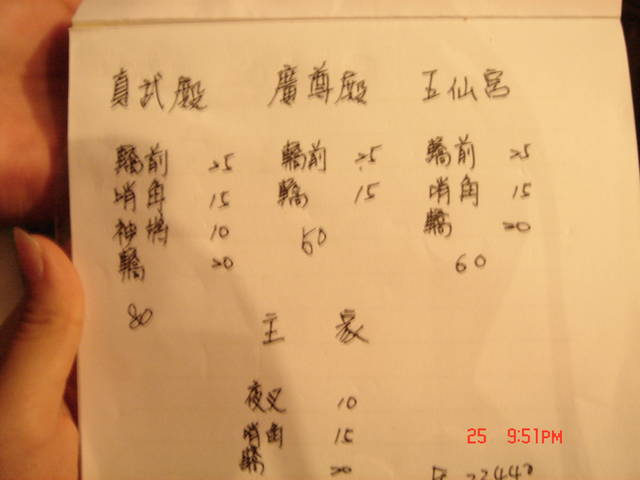 真武殿 廣尊殿 五仙宮
轎前 25 轎前 25 轎前 25
哨角 15 轎 15 哨角 15
神將 10 轎 20
轎 20
50
60
80
主 家
夜叉 10
哨角 15
轎 20
25 9:51PM